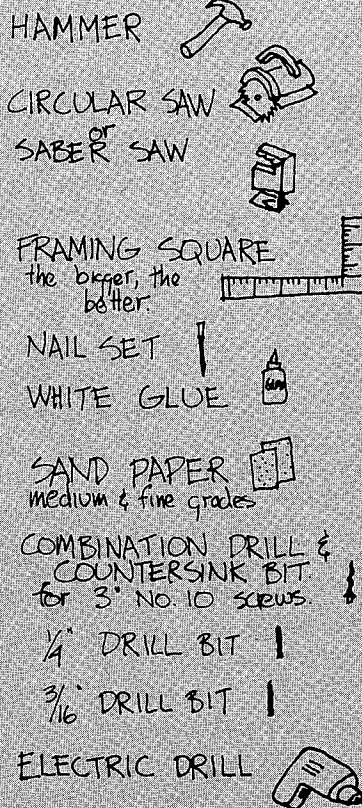 HAMMER
CIRCULAR SAW
or
SABER SAW
FRAMING SQUARE
the bigger, the
better.
NAIL SET
WHITE GLUE
GLUE
SAND PAPER
medium & fine grades
COMBINATION DRILL &
COUNTERSINK BIT
for 3" NO. 10 screws.
1/4" DRILL BIT
3/16" DRILL BIT
ELECTRIC DRILL